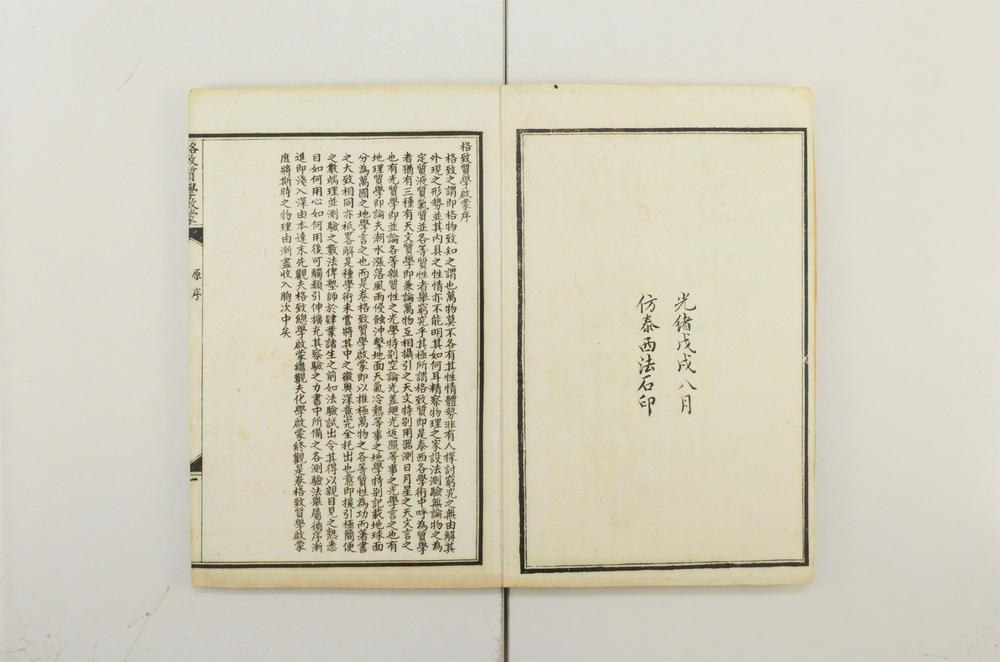 光緒戊戌八月
仿泰西法石印
格致質學啟蒙序
格致之謂即格物致知之謂也萬物莫不各有其性情體勢非有人探討窮究之無由解其
外現之形勢並其內具之性情亦不能明其如何耳精察物理之家設法測驗無論物之為
定質液質氣質並各等質性者舉窮究乎其極所謂格致質即是泰西各學術中呼為質學
者猶有三種有天文質學即兼論萬物互相攝引之天文特別用器測日月星之天文言之
也有光質學即並論各等雜質性之光學特别空論光差廻光返照等事之光學言之也有
地理質學即論夫潮水漲落風雨侵蝕沖擊地面天氣冷熱等事之地學特别記載地球面
分為萬國之地學言之也而是卷格致質學啟蒙即以推極萬物之各等質性為功而著書
之大致相同亦祇畧解是種學術未嘗將其中之微奧深意完全托出也意即援引極簡便
之數端理並測驗之數法俾塾師於肄業諸生之前如法驗試出令其得以親目見之熟悉
目如何用心如何用後可觸類引伸擴充其察驗之力書中所備之各測驗法舉屬循序漸
進即淺入深由本達末先觀夫格致總學啟蒙繼觀夫化學啟蒙終觀是卷格致質學啟蒙
庶將斯時之物理由漸盡收入胸次中矣
格致質學啟蒙
原序
一